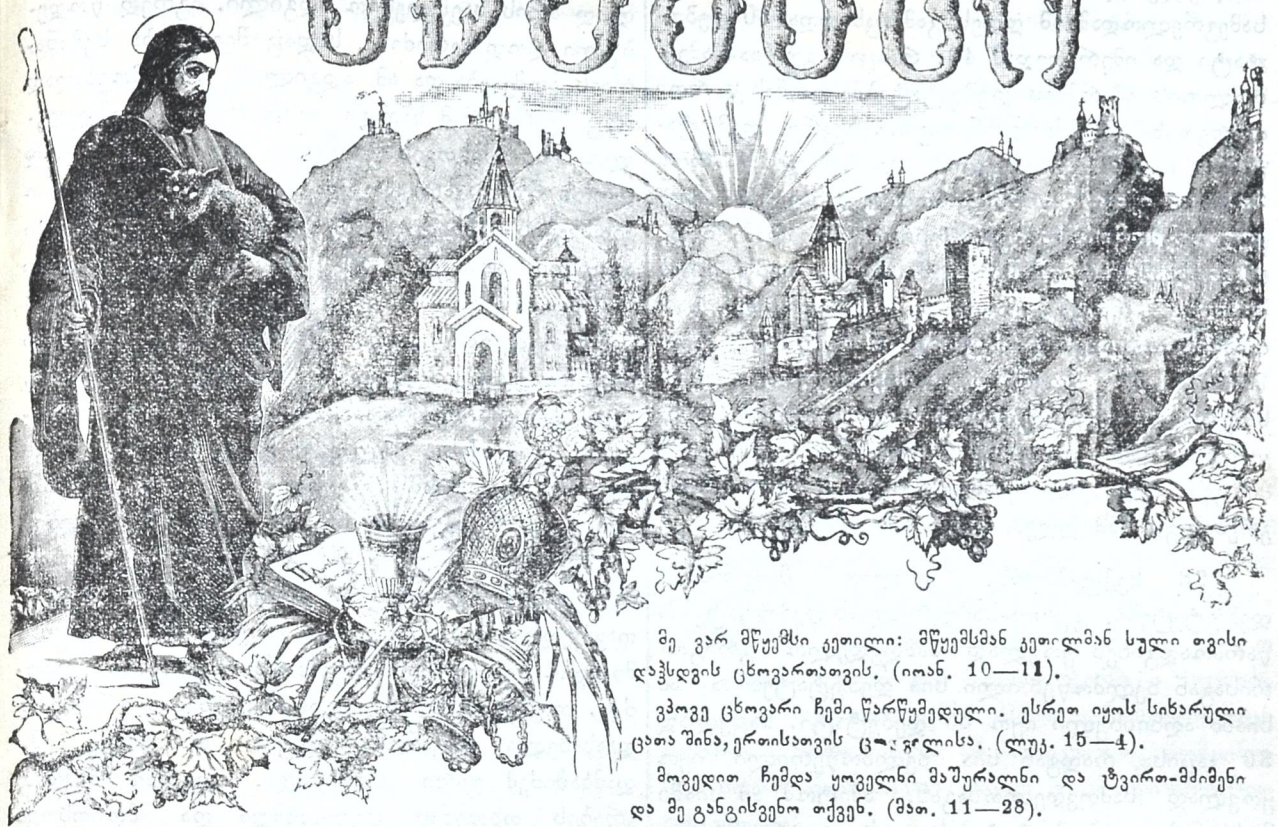 მე ვარ მწყემსი კეთილი: მწყემსმან კეთილმან სული თვისი
დაჰსდგის ცხოვართათვის. (იოან. 10—11).
ვპოვე ცხოვარი ჩემი წარწყმედული, ესრეთ იყოს სიხარული
ცათა შინა, ერთისათვის (ლუკ. 15—4).
მოვედით ჩემდა ყოველნი მაშვრალნი და ტვირთ-მძიმენი
და მე განგისვენო თქვენ. (მათ. 11—28).